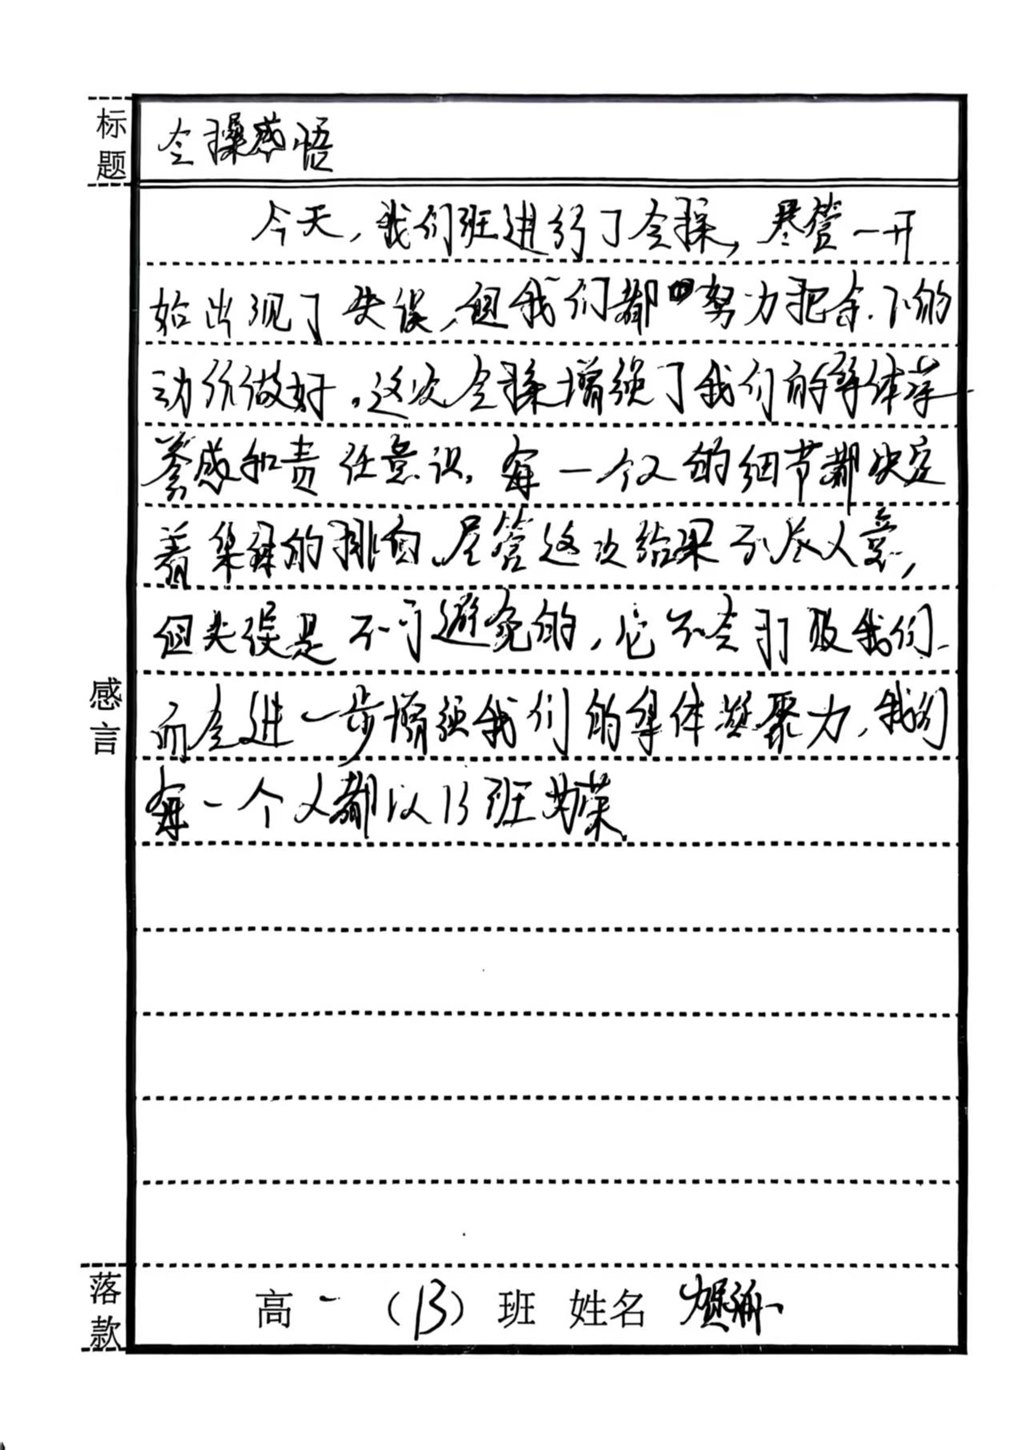 标题
会操感悟
今天，我们班进行了会操，尽管一开
始出现了失误，但我们都努力把余下的
动作做好。这次会操增强了我们的集体荣
誉感和责任意识，每一个人的细节都决定
着集体的排面，尽管这次结果不尽人意，
但失误是不可避免的，它不会打败我们、
而会进一步增强我们的集体凝聚力，我们
每一个人都以13班为荣
感言
落款
高一（13）班 姓名 贺